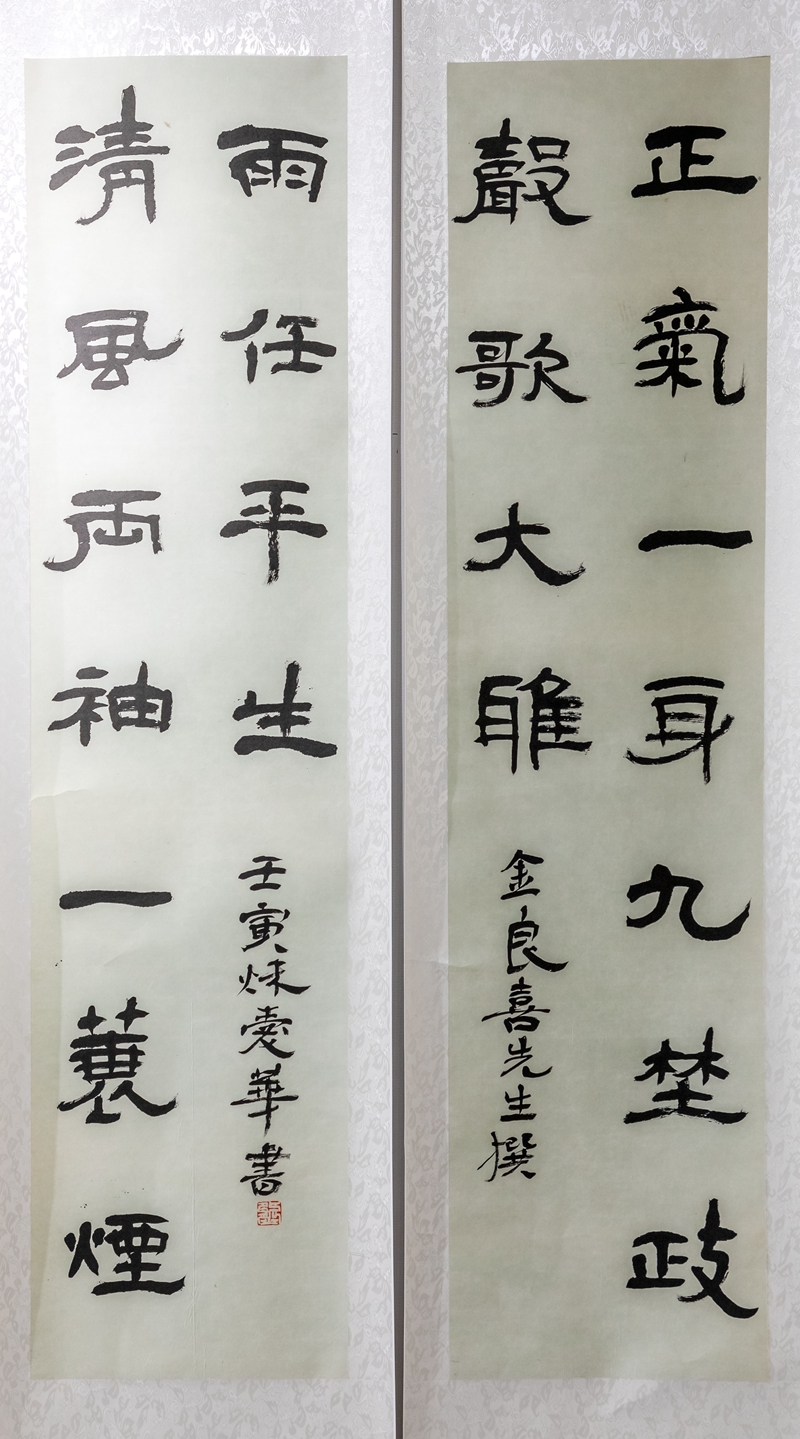 正氣一身九埜政
聲歌大雅
金良喜先生撰
清風両袖一蓑煙
雨任平生
壬寅秌愛華書